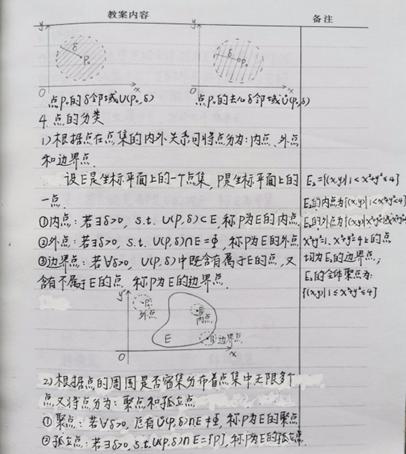 教案内容
备注
y
δ
P₀
O
x
y
δ
P₀
O
x
点P₀的δ邻域U(P₀,δ)
点P₀的去心δ邻域Ů(P₀,δ)
4. 点的分类
1) 根据点在点集的内外关系可将点分为:内点、外点
和边界点.
设E是坐标平面上的一个点集, P是坐标平面上的
一点.
①内点: 若∃δ>0, s.t. U(P,δ)⊂E, 称P为E的内点
②外点: 若∃δ>0, s.t. U(P,δ)∩E=Φ, 称P为E的外点
③边界点: 若∀δ>0, U(P,δ)中既含有属于E的点, 又
含有不属于E的点, 称P为E的边界点.
E₂={(x,y)|1<x²+y²≤4}
E₂的内点为{(x,y)|1<x²+y²<4}
E₂的外点为{(x,y)|x²+y²<1或x²+y²>4}
x²+y²=1, x²+y²=4上的点
均为E₂的边界点;
E₂的全体聚点为:
{(x,y)|1≤x²+y²≤4}
y
外点
内点
E
边界点
O
x
2) 根据点的周围是否密集分布着点集中无限多个
点又将点分为: 聚点和孤立点.
① 聚点: 若∀δ>0, 总有Ů(P,δ)∩E≠Φ, 称P为E的聚点
② 孤立点: 若∃δ>0, s.t. U(P,δ)∩E={P}, 称P为E的孤立点